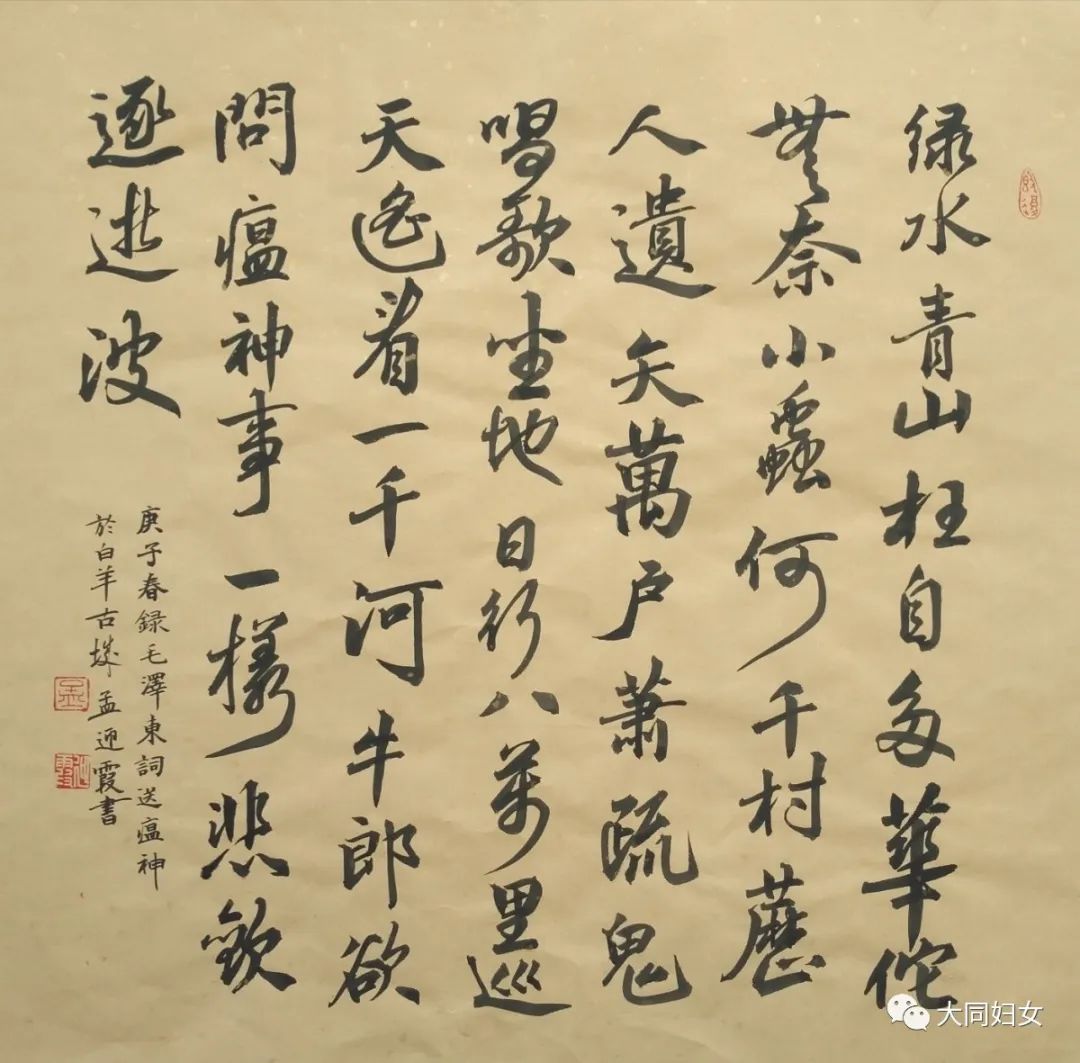 绿水青山枉自多華佗
無奈小蟲何千村藶
人遺矢萬户蕭疏鬼
唱歌坐地日行八萬里巡
天遙看一千河牛郎欲
問瘟神事一樣悲歡
逐逝波
庚子春録毛澤東詞送瘟神
於白羊古城孟迎霞書
大同妇女